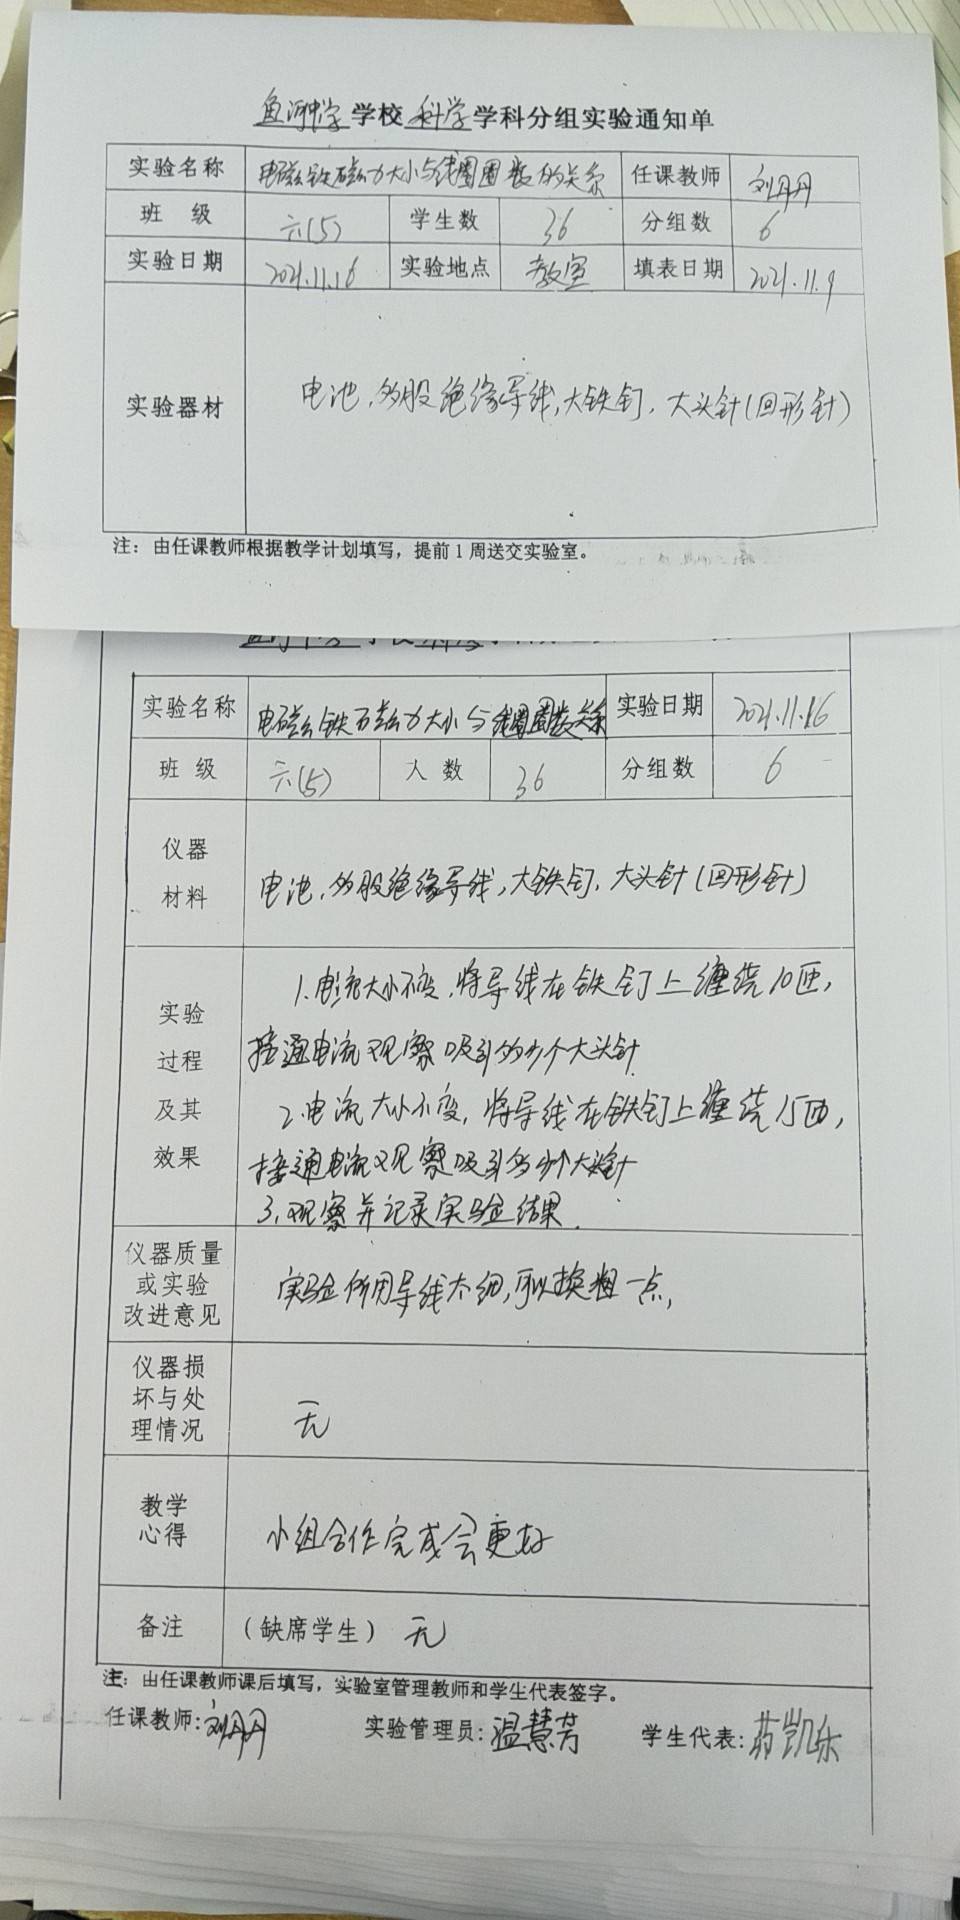 鱼河中学 学校 科学 学科分组实验通知单
实验名称 电磁铁磁力大小与线圈圈数的关系 任课教师 刘丹丹
班 级 六(5) 学生数 36 分组数 6
实验日期 2021.11.16 实验地点 教室 填表日期 2021.11.9
实验器材 电池,多股绝缘导线,大铁钉,大头针(回形针)
注：由任课教师根据教学计划填写，提前1周送交实验室。
实验名称 电磁铁磁力大小与线圈圈数关系 实验日期 2021.11.16
班 级 六(5) 人 数 36 分组数 6
仪器
材料
电池,多股绝缘导线,大铁钉,大头针(回形针)
实验
过程
及其
效果
1.电流大小不变,将导线在铁钉上缠绕10匝,
接通电流观察吸引多少个大头针
2.电流大小不变,将导线在铁钉上缠绕15匝,
接通电流观察吸引多少个大头针
3.观察并记录实验结果.
仪器质量
或实验
改进意见
实验所用导线太细,可以换粗一点,
仪器损
坏与处
理情况
无
教学
心得
小组合作完成会更好
备注 （缺席学生） 无
注：由任课教师课后填写，实验室管理教师和学生代表签字。
任课教师:刘丹丹 实验管理员:温慧芳 学生代表:凯乐